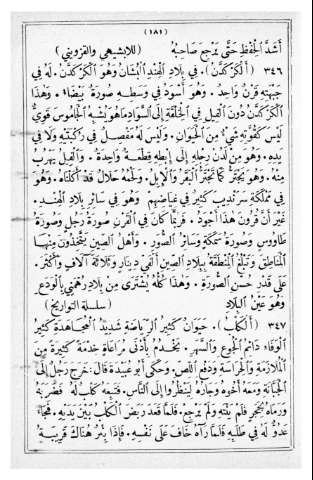 (١٨١)
أَشَدَّ الْحِفْظِ حَتَّى يَرْجِعَ صَاحِبُهُ (للابشيهي والقزويني)
٣٤٦ (اَلْكَرْكَدَّنُ). فِي بِلَادِ الْهِنْدِ الْبُشَانُ وَهُوَ الْكَرْكَدَّنُ. لَهُ فِي
جَبْهَتِهِ قَرْنٌ وَاحِدٌ. وَهُوَ أَسْوَدُ فِي وَسَطِهِ صُورَةٌ بَيْضَاءُ. وَهٰذَا
الْكَرْكَدَّنُ دُونَ الْفِيلِ فِي الْخِلْقَةِ إِلَى السَّوَادِ مَا هُوَ يُشْبِهُ الْجَامُوسَ قَوِيٌّ
لَيْسَ كَقُوَّتِهِ شَيْءٌ مِنَ الْحَيَوَانِ. وَلَيْسَ لَهُ مَفْصِلٌ فِي رُكْبَتِهِ وَلَا فِي
يَدِهِ. وَهُوَ مِنْ لَدُنْ رِجْلِهِ إِلَى إِبْطِهِ قِطْعَةٌ وَاحِدَةٌ. وَالْفِيلُ يَهْرُبُ
مِنْهُ. وَهُوَ يَجْتَرُّ كَمَا تَجْتَرُّ الْبَقَرُ وَالْإِبِلُ. وَلَحْمُهُ حَلَالٌ قَدْ أَكَلْنَاهُ. وَهُوَ
فِي مَمْلَكَةِ سَرَنْدِيبَ كَثِيرٌ فِي غِيَاضِهِمْ وَهُوَ فِي سَائِرِ بِلَادِ الْهِنْدِ.
غَيْرَ أَنَّ قُرُونَ هٰذَا أَجْوَدُ. فَرُبَّمَا كَانَ فِي الْقَرْنِ صُورَةُ رَجُلٍ وَصُورَةُ
طَاوُوسٍ وَصُورَةُ سَمَكَةٍ وَسَائِرُ الصُّوَرِ. وَأَهْلُ الصِّينِ يَتَّخِذُونَ مِنْهَا
الْمَنَاطِقَ وَتَبْلُغُ الْمِنْطَقَةُ بِبِلَادِ الصِّينِ أَلْفَيْ دِينَارٍ وَثَلَاثَةَ آلَافٍ وَأَكْثَرَ.
عَلَى قَدْرِ حُسْنِ الصُّورَةِ. وَهٰذَا كُلُّهُ يُشْتَرَى مِنْ بِلَادِ رُهْمِي بِالْوَدَعِ.
وَهُوَ عَيْنُ الْبِلَادِ (سلسلة التواريخ)
٣٤٧ (اَلْكَلْبُ). حَيَوَانٌ كَثِيرُ الرِّيَاضَةِ شَدِيدُ الْمُجَاهَدَةِ كَثِيرُ
الْوَفَاءِ دَائِمُ الْجُوعِ وَالسَّهَرِ. يَخْدُمُ بِأَدْنَى مُرَاعَاةٍ خِدْمَةً كَثِيرَةً مِنَ
الْمُلَازَمَةِ وَالْحِرَاسَةِ وَدَفْعِ اللِّصِّ. وَحَكَى أَبُو عُبَيْدَةَ قَالَ: خَرَجَ رَجُلٌ إِلَى
الْجَبَّانَةِ وَمَعَهُ أَخُوهُ وَجَارُهُ لِيَنْظُرُوا إِلَى النَّاسِ. فَتَبِعَهُ كَلْبٌ لَهُ فَضَرَبَهُ
وَرَمَاهُ بِحَجَرٍ فَلَمْ يَنْتَهِ وَلَمْ يَرْجِعْ. فَلَمَّا قَعَدَ رَبَضَ الْكَلْبُ بَيْنَ يَدَيْهِ. فَجَاءَ
عَدُوٌّ لَهُ فِي طَلَبِهِ فَلَمَّا رَآهُ خَافَ عَلَى نَفْسِهِ. فَإِذَا بِئْرٌ هُنَاكَ قَرِيبَةُ